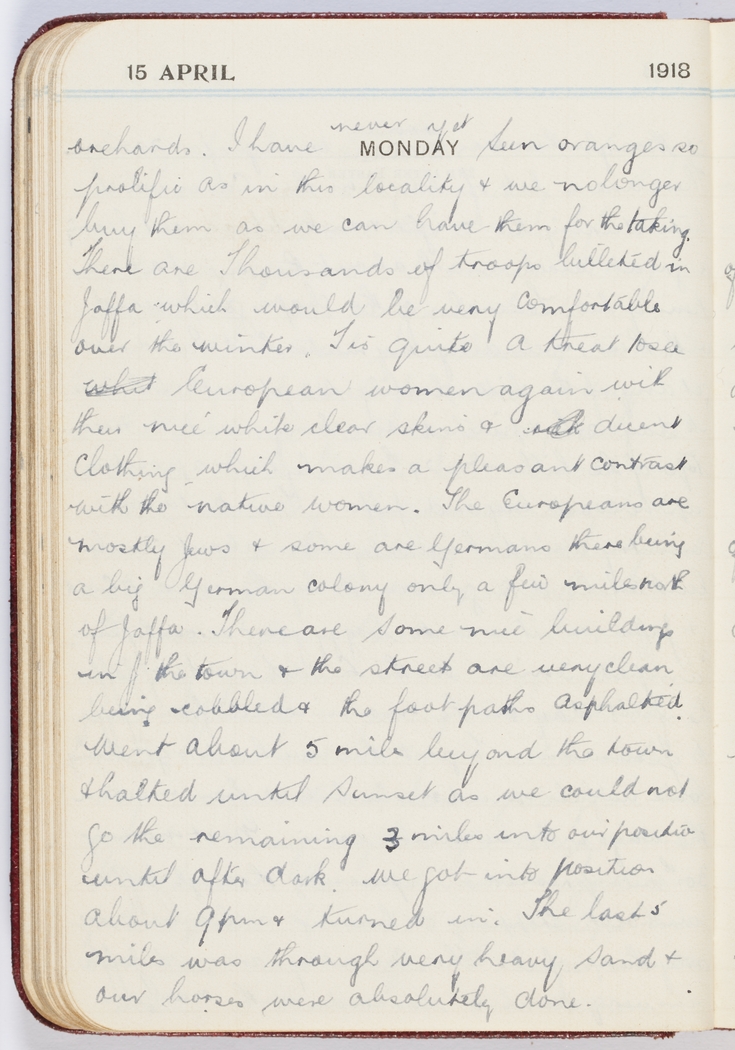 15 APRIL 1918
never yet
orchards. I have MONDAY seen oranges so
prolific as in this locality & we nolonger
buy them as we can have them for the taking.
There are Thousands of troops billeted in
Jaffa which would be very comfortable
over the winter. Tis quite a treat to see
whit European women again with
their nice white clear skins & decent
Clothing which makes a pleasant contrast
with the native women. The Europeans are
mostly Jews & some are Germans there being
a big German colony only a few miles north
of Jaffa. There are some nice buildings
in the town & the street are very clean
being cobbled & the foot paths Asphalted.
Went about 5 mile beyond the town
& halted until Sunset as we could not
go the remaining 3 miles into our positio
until after dark. We got into position
about 9pm & turned in. The last 5
miles was through very heavy sand &
our horses were absolutely done.